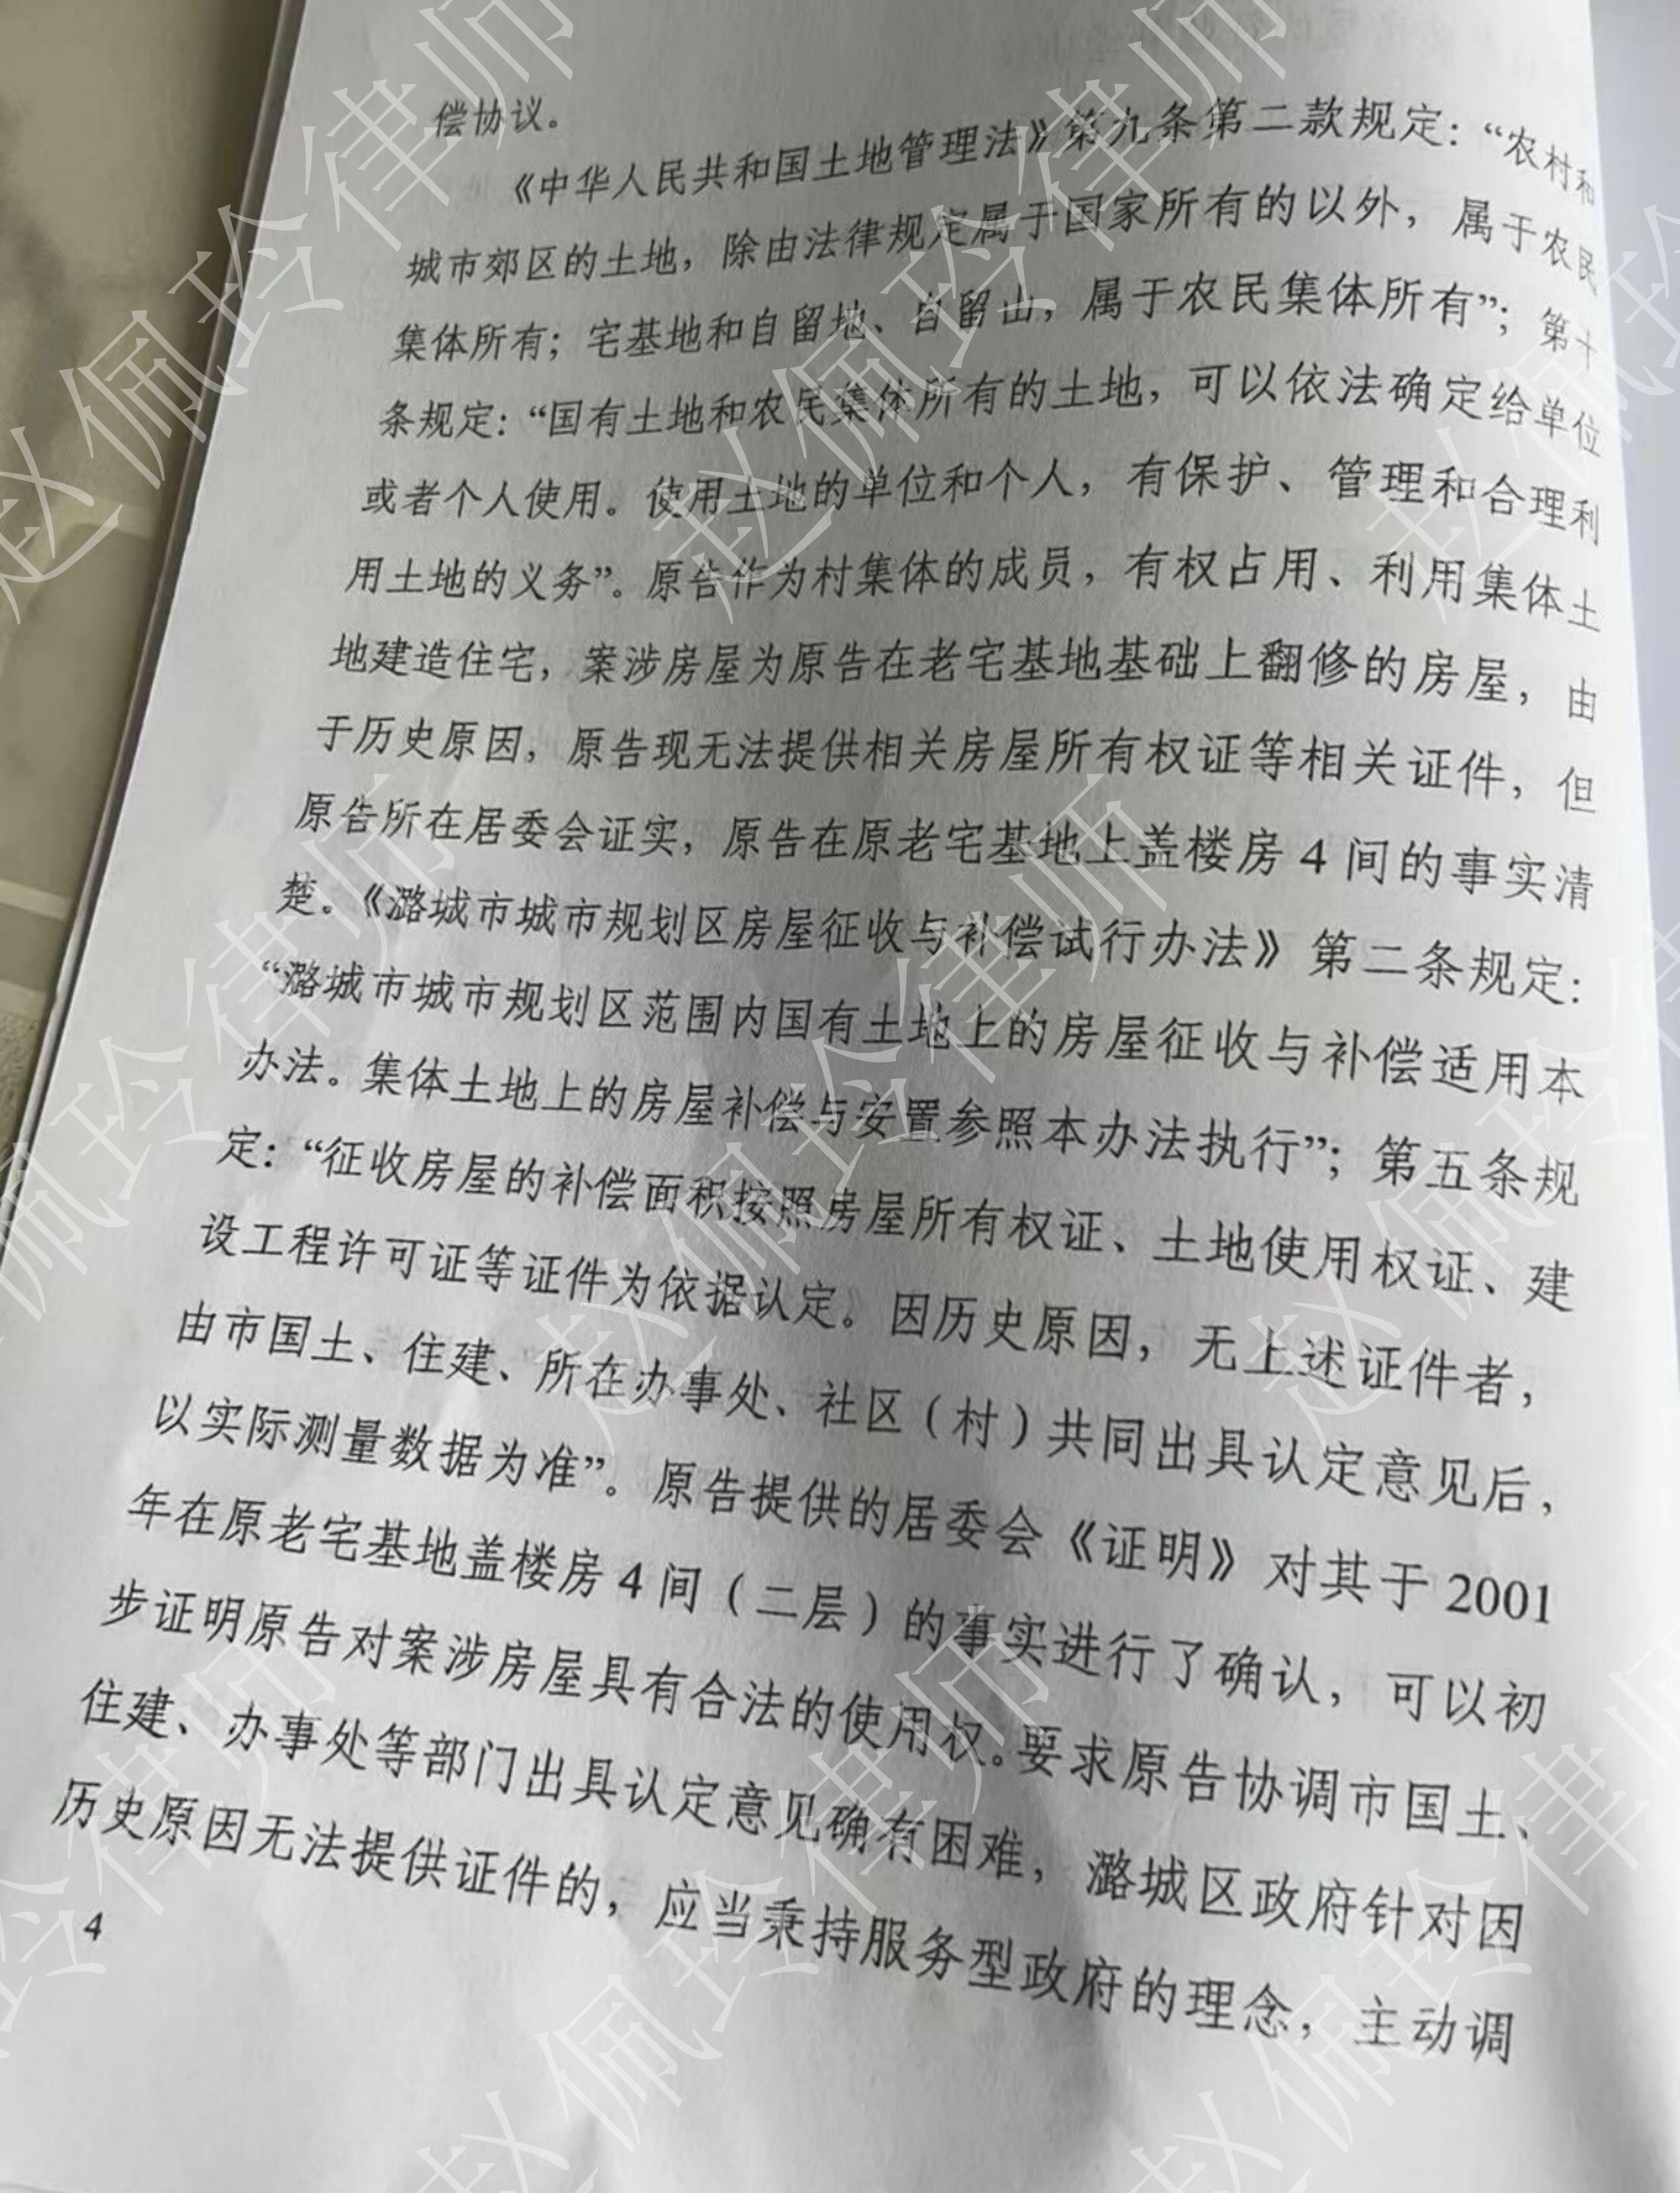 偿协议。
《中华人民共和国土地管理法》第九条第二款规定：“农村和
城市郊区的土地，除由法律规定属于国家所有的以外，属于农民
集体所有；宅基地和自留地、自留山，属于农民集体所有”；第十
条规定：“国有土地和农民集体所有的土地，可以依法确定给单位
或者个人使用。使用土地的单位和个人，有保护、管理和合理利
用土地的义务”。原告作为村集体的成员，有权占用、利用集体土
地建造住宅，案涉房屋为原告在老宅基地基础上翻修的房屋，由
于历史原因，原告现无法提供相关房屋所有权证等相关证件，但
原告所在居委会证实，原告在原老宅基地上盖楼房4间的事实清
楚。《潞城市城市规划区房屋征收与补偿试行办法》第二条规定：
“潞城市城市规划区范围内国有土地上的房屋征收与补偿适用本
办法。集体土地上的房屋补偿与安置参照本办法执行”；第五条规
定：“征收房屋的补偿面积按照房屋所有权证、土地使用权证、建
设工程许可证等证件为依据认定。因历史原因，无上述证件者，
由市国土、住建、所在办事处、社区（村）共同出具认定意见后，
以实际测量数据为准”。原告提供的居委会《证明》对其于2001
年在原老宅基地盖楼房4间（二层）的事实进行了确认，可以初
步证明原告对案涉房屋具有合法的使用权。要求原告协调市国土、
住建、办事处等部门出具认定意见确有困难，潞城区政府针对因
历史原因无法提供证件的，应当秉持服务型政府的理念，主动调
4
赵佩玲律师